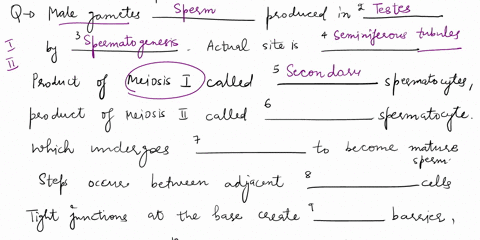 Q→ Male gametes Sperm produced in 2 Testes
I by 3 Spermatogenesis. Actual site is 4 Seminiferous tubules
II
Product of Meiosis I called 5 Secondary spermatocytes,
product of Meiosis II called 6 spermatocyte.
which undergoes 7 to become mature sperm.
Steps occur between adjacent 8 cells
Tight junctions at the base create 9 barrier,